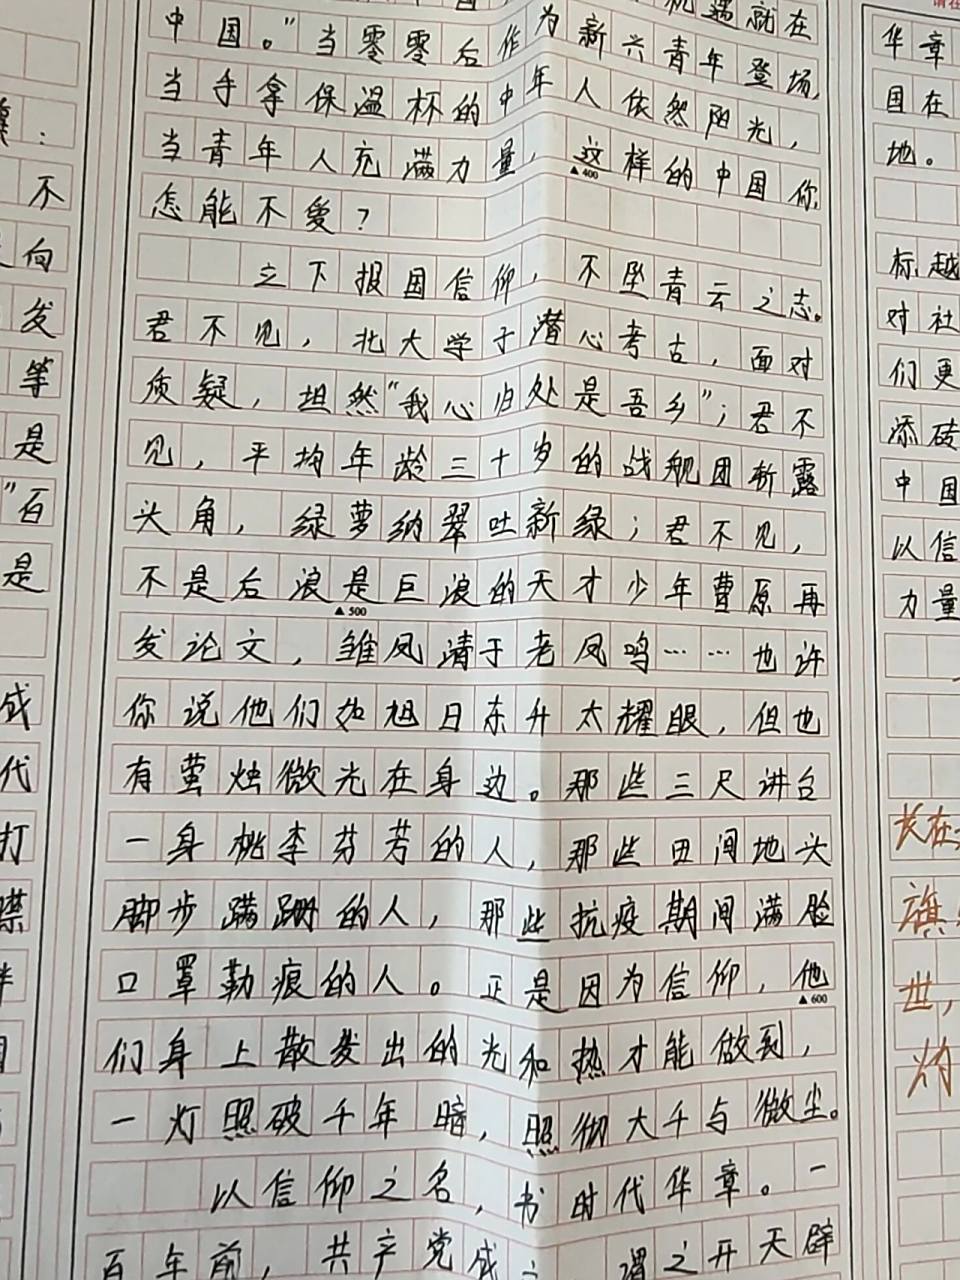 机遇就在
中国。"当零零后作为新兴青年登场,
当手拿保温杯的中年人依然阳光,
当青年人充满力量,这样的中国你
▲400
怎能不爱?
立下报国信仰,不坠青云之志。
君不见,北大学子潜心考古,面对
质疑,坦然"我心归处是吾乡";君不
见,平均年龄三十岁的战舰团斩露
头角,绿萝纳翠吐新绿;君不见,
不是后浪是巨浪的天才少年曹原再
▲500
发论文,雏凤清于老凤鸣……也许
你说他们如旭日东升太耀眼,但也
有萤烛微光在身边。那些三尺讲台
一身桃李芬芳的人,那些田间地头
脚步蹒跚的人,那些抗疫期间满脸
口罩勒痕的人。正是因为信仰,他
▲600
们身上散发出的光和热才能做到,
一灯照破千年暗,照彻大千与微尘。
以信仰之名,书时代华章。一
百年前,共产党成立谓之开天辟
:
不
向
发
等
是
"百
是
成
代
打
华章
国在
地。
标越
对社
们更
添砖
中国
以信
力量
长在
旗
世,
灼